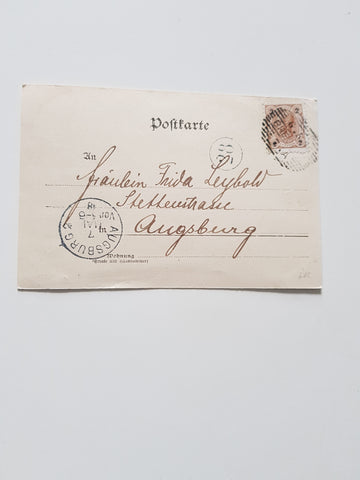 Postkarte
An
Fräulein Frida Leybold
Stettenstrasse
Augsburg
Wohnung
(Straße und Hausnummer)
AUGSBURG 2
7
MAI
Vor 5-6
98